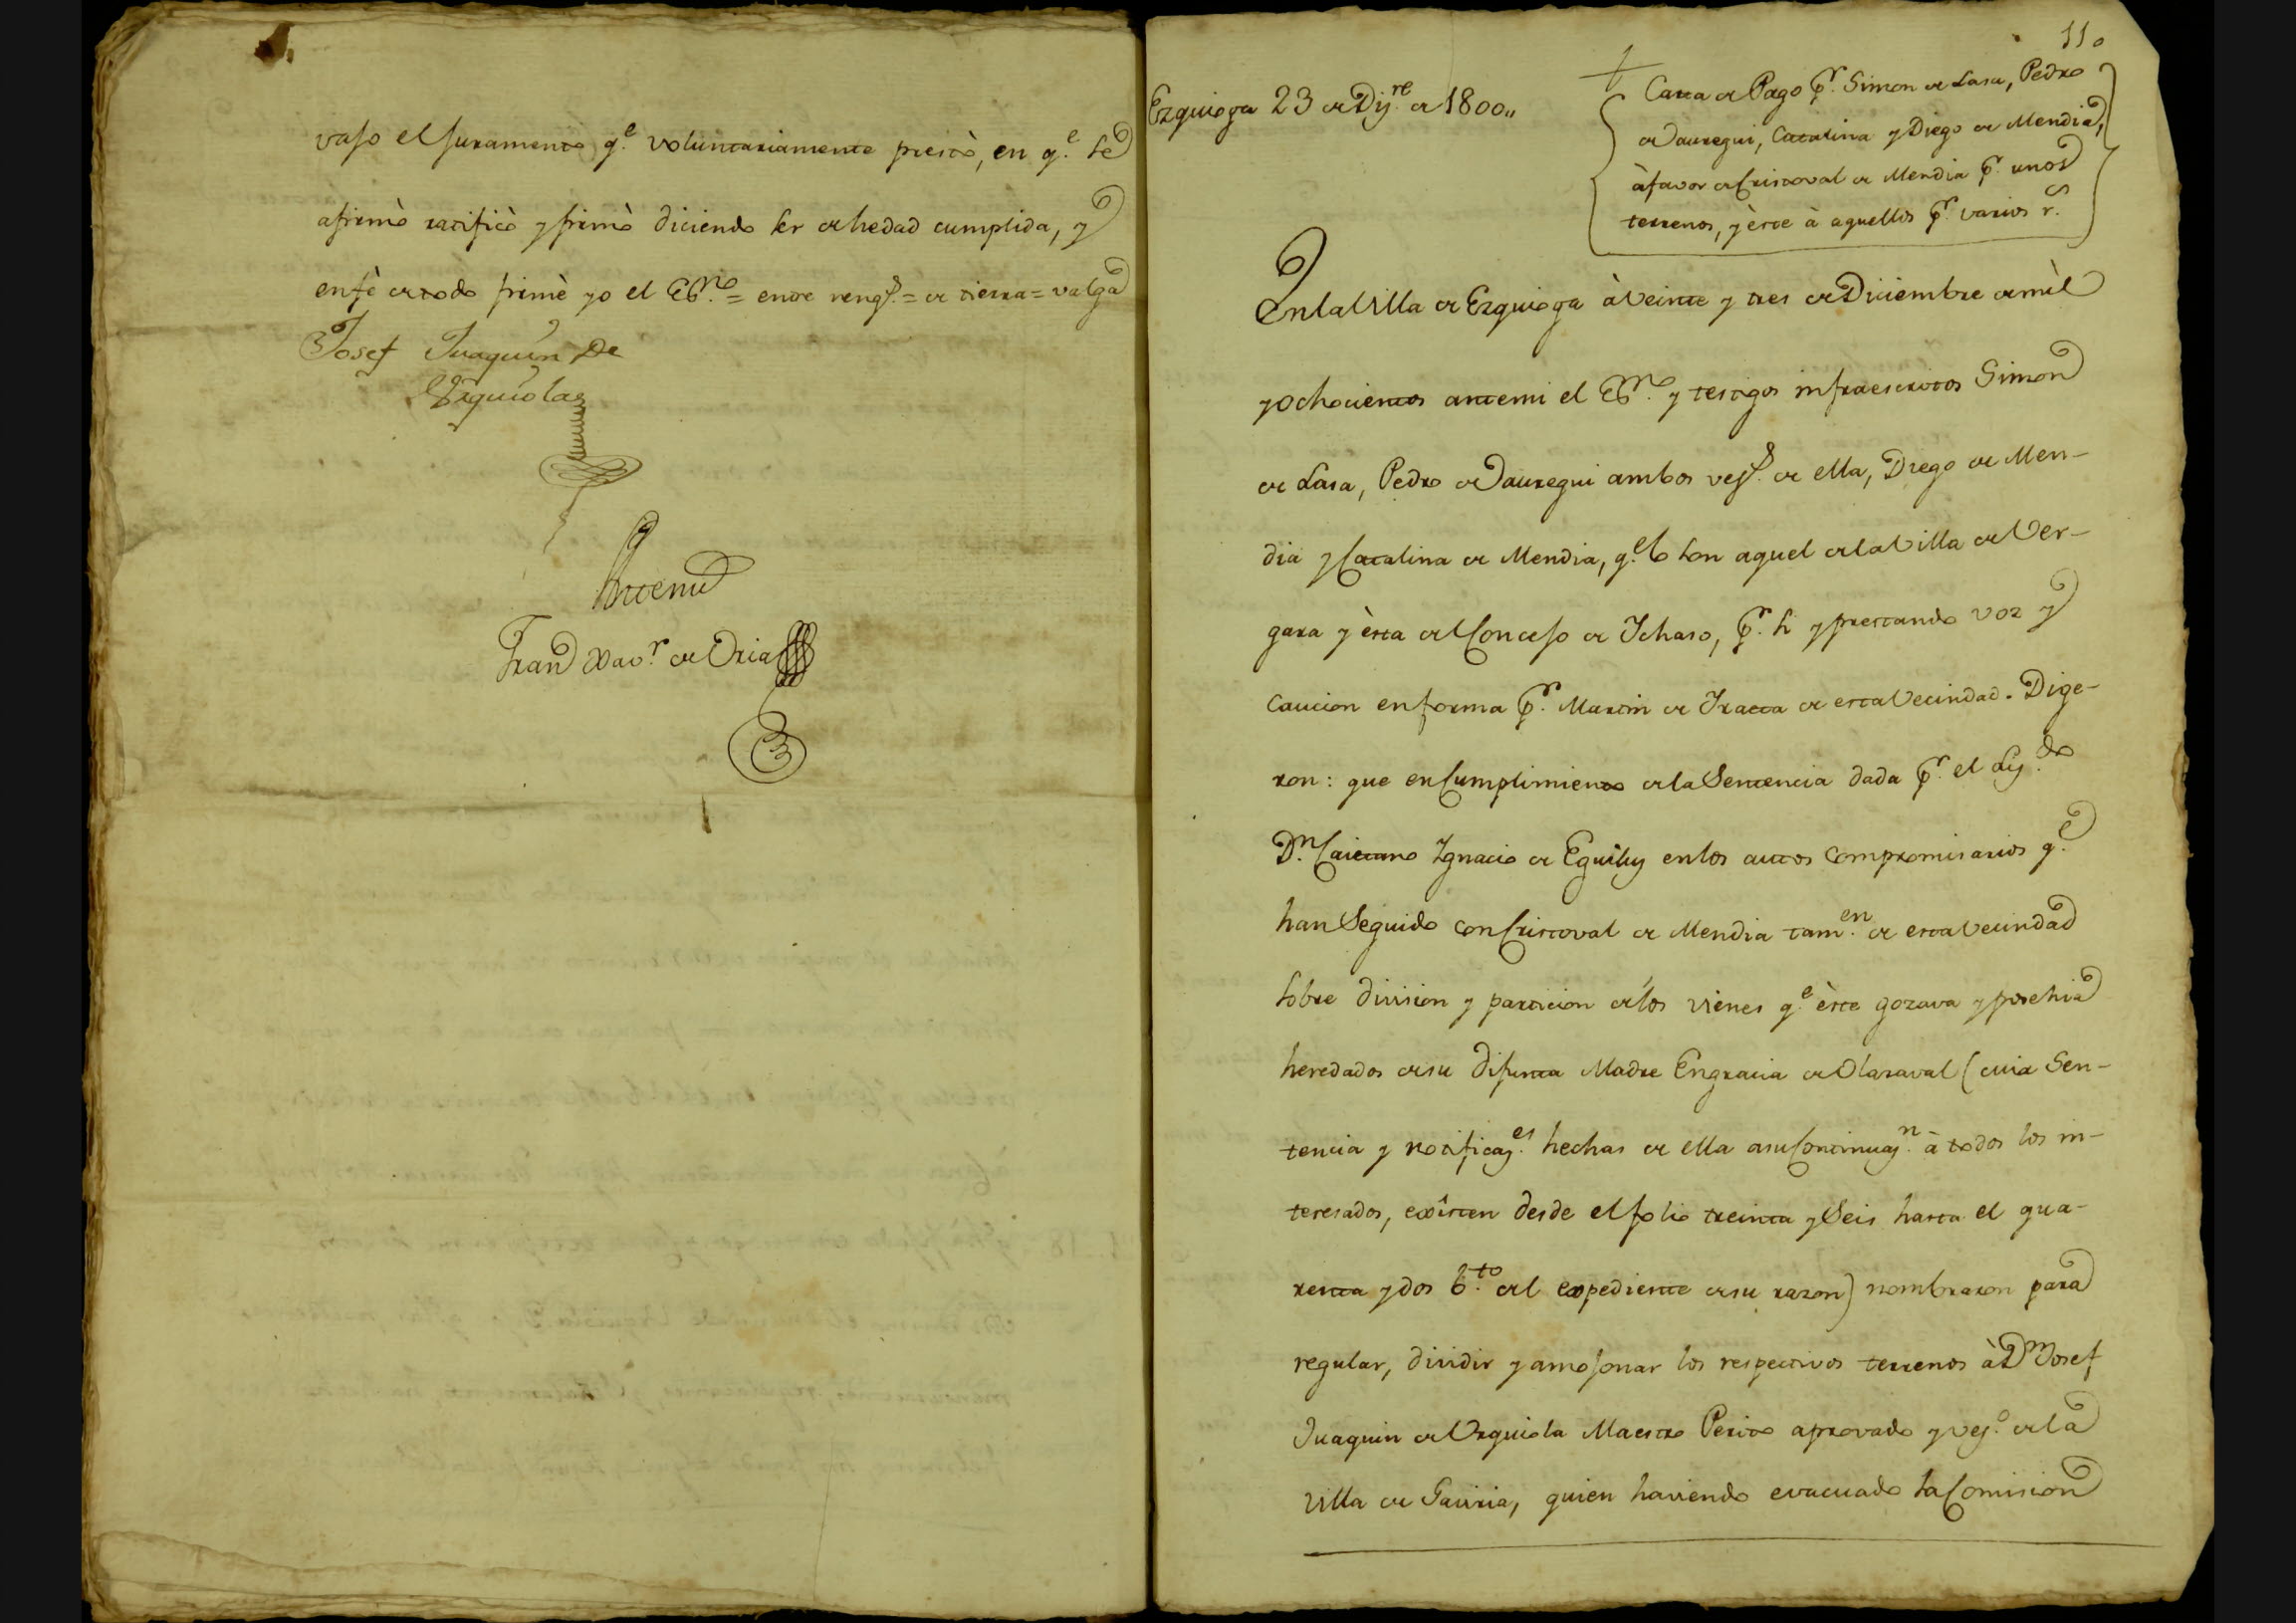 vajo el juramento q.e voluntariamente prestò, en q.e se
afirmò ratificò y firmò diciendo ser de hedad cumplida, y
enfè de todo firmè yo el Es.no = entre reng.s = de tierra = valga
Josef Juaquin De
Urquiola
Antemi
Fran.co Xav.r de Oria
110
Ezquioga 23 de Diz.re de 1800,,
Carta de Pago p.r Simon de Lasa, Pedro
de Jauregui, Catalina y Diego de Mendia,
à favor de Cristoval de Mendia p.r unos
terrenos, y èste à aquellos p.r varios r.s
En la Villa de Ezquioga à Veinte y tres de Diciembre de mìl
y ochocientos antemi el Es.no y testigos infraescritos Simon
de Lasa, Pedro de Jauregui ambos vez.s de ella, Diego de Men-
dia y Catalina de Mendia, q.e lo son aquel de la Villa de Ver-
gara y èsta del Consejo de Ichaso, p.r si y prestando voz y
Caucion en forma p.r Martin de Iraeta de esta Vecindad. Dige-
ron: que en Cumplimiento de la Sentencia dada p.r el Liz.do
D.n Caietano Ignacio de Eguiluz en los autos compromisarios q.e
han Seguido con Cristoval de Mendia tam.en de esta Vecindad
sobre division y particion de los vienes q.e èste gozava y posehia
heredados de su difunta Madre Engracia de Olaraval (cuia Sen-
tencia y notificaz.es hechas de ella a su Continuaz.n à todos los in-
teresados, exîsten desde el folio treinta y Seis hasta el qua-
renta y dos b.to del expediente de su razon) nombraron para
regular, dividir y amojonar los respectivos terrenos à D.n Josef
Juaquin de Urquiola Maestro Perito aprovado y vez.o de la
Villa de Gaviria, quien haviendo evacuado la Comision